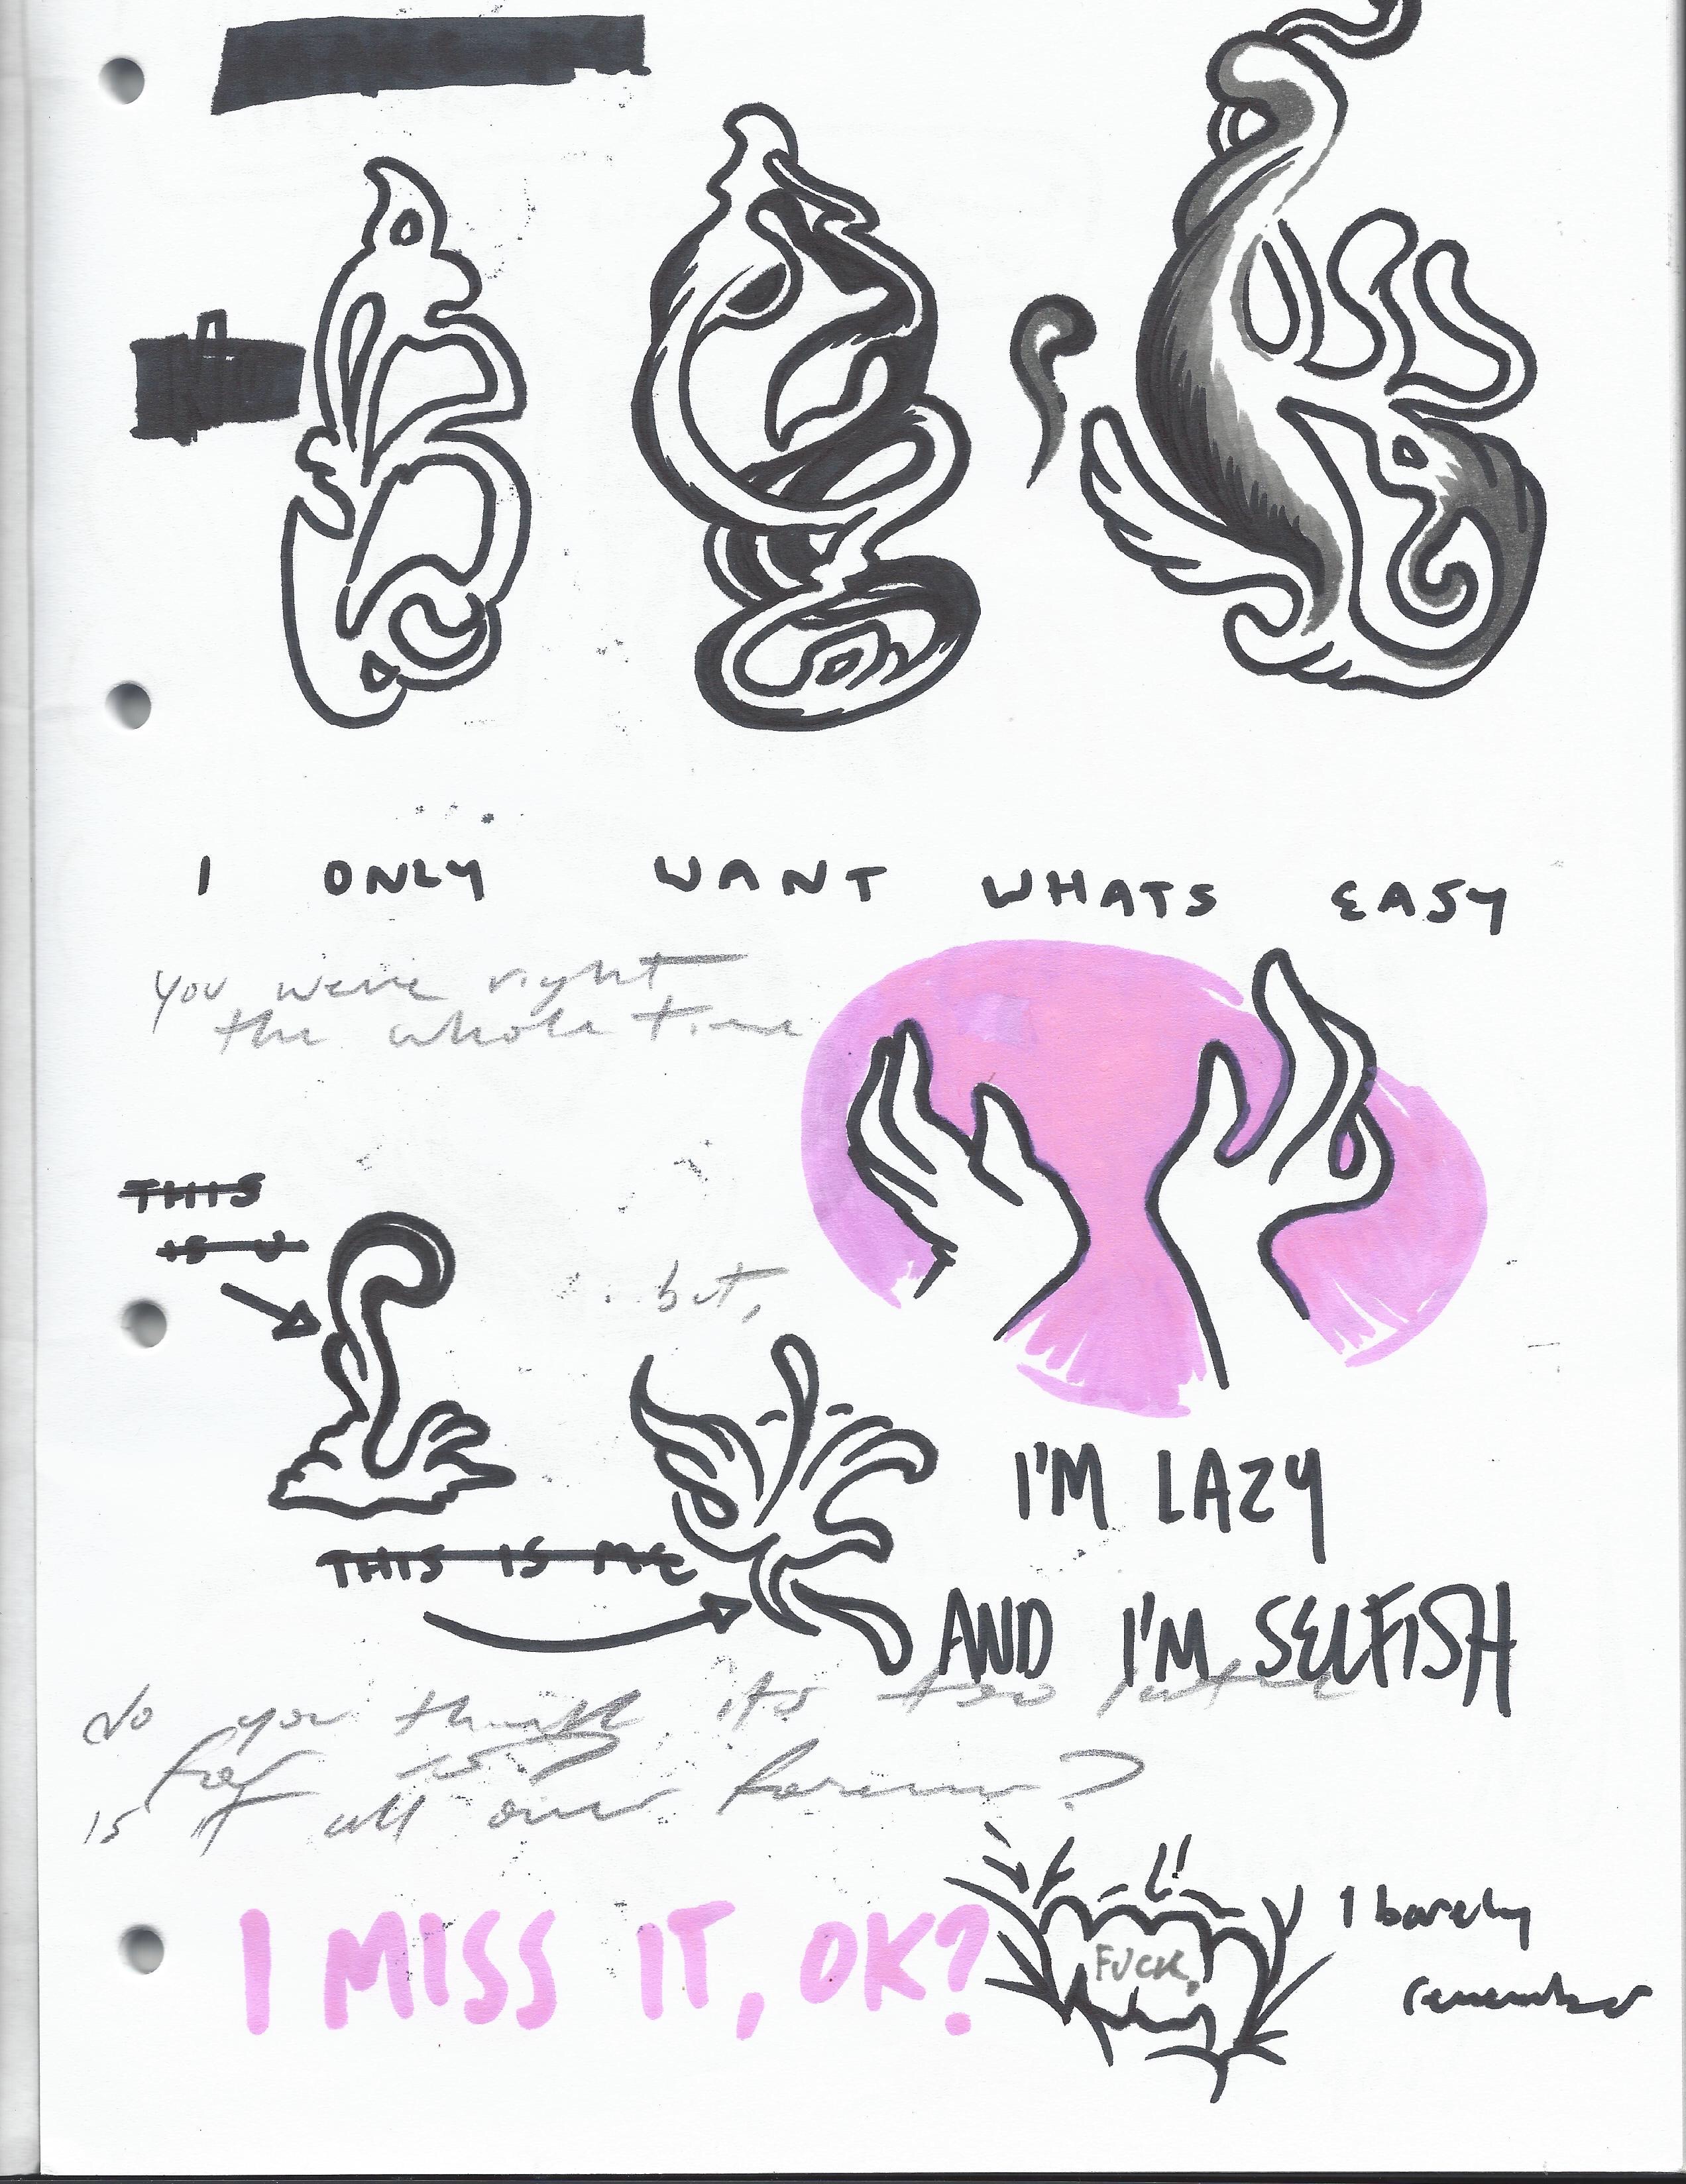 I ONLY WANT WHATS EASY
you were right
the whole time
THIS
IS U
but,
I'M LAZY
THIS IS ME
AND I'M SELFISH
do you think its too late
for us?
is it all over forever?
I MISS IT, OK?
FUCK.
I barely
remember